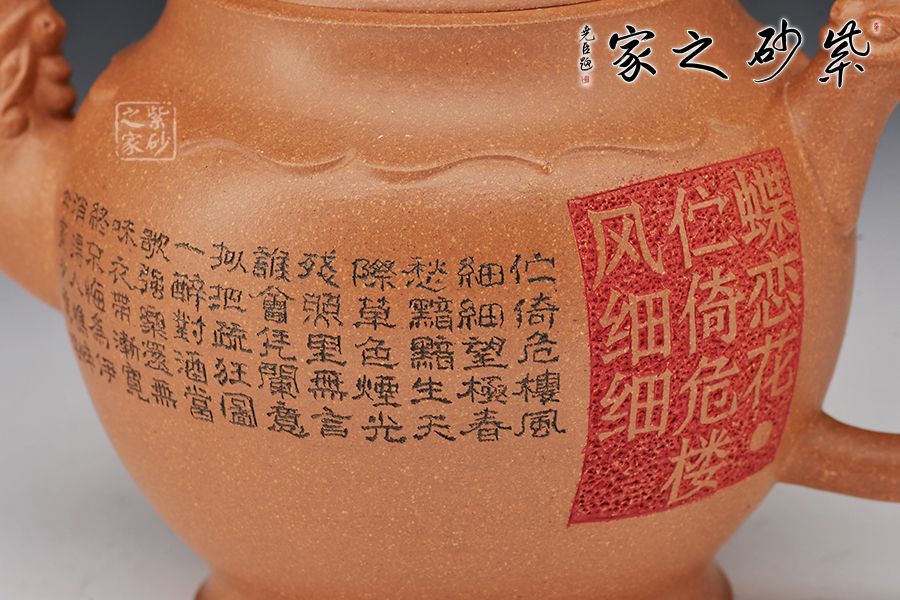 紫砂之家
尧臣题
紫砂
之家
蝶恋花
伫倚危楼
风细细
佇倚危樓風
細細望極春
愁黯黯生天
際草色煙光
残照里無言
誰會凭闌意
拟把疏狂圖
一醉對酒當
歌強樂還無
味衣帶漸寬
終不悔為伊
消得人憔悴